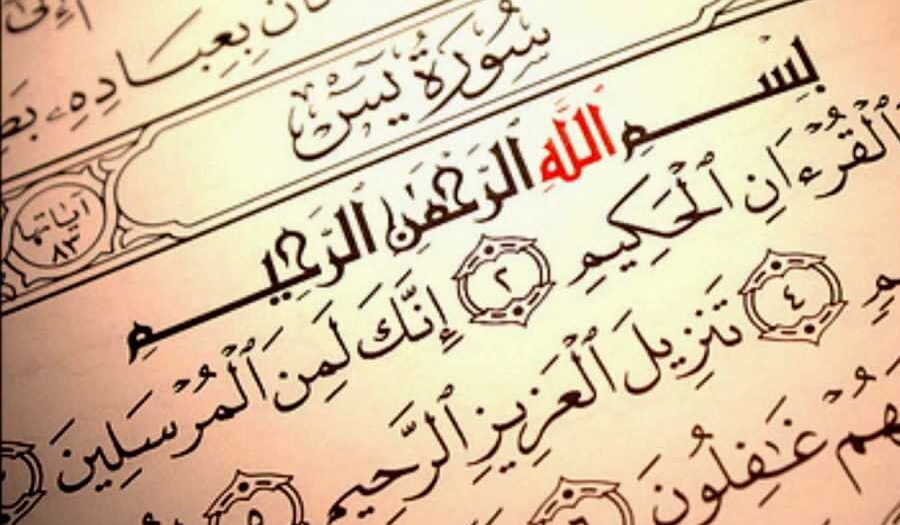 كَانَ بِعِبَادِهِۦ
سُورَةُ يسٓ
آيَاتُهَا
٨٣
بِسْمِ ٱللَّهِ ٱلرَّحْمَٰنِ ٱلرَّحِيمِ
ٱلْقُرْءَانِ ٱلْحَكِيمِ ٢ إِنَّكَ لَمِنَ ٱلْمُرْسَلِينَ
٤ تَنزِيلَ ٱلْعَزِيزِ ٱلرَّحِيمِ ٥
غَٰفِلُونَ ٦